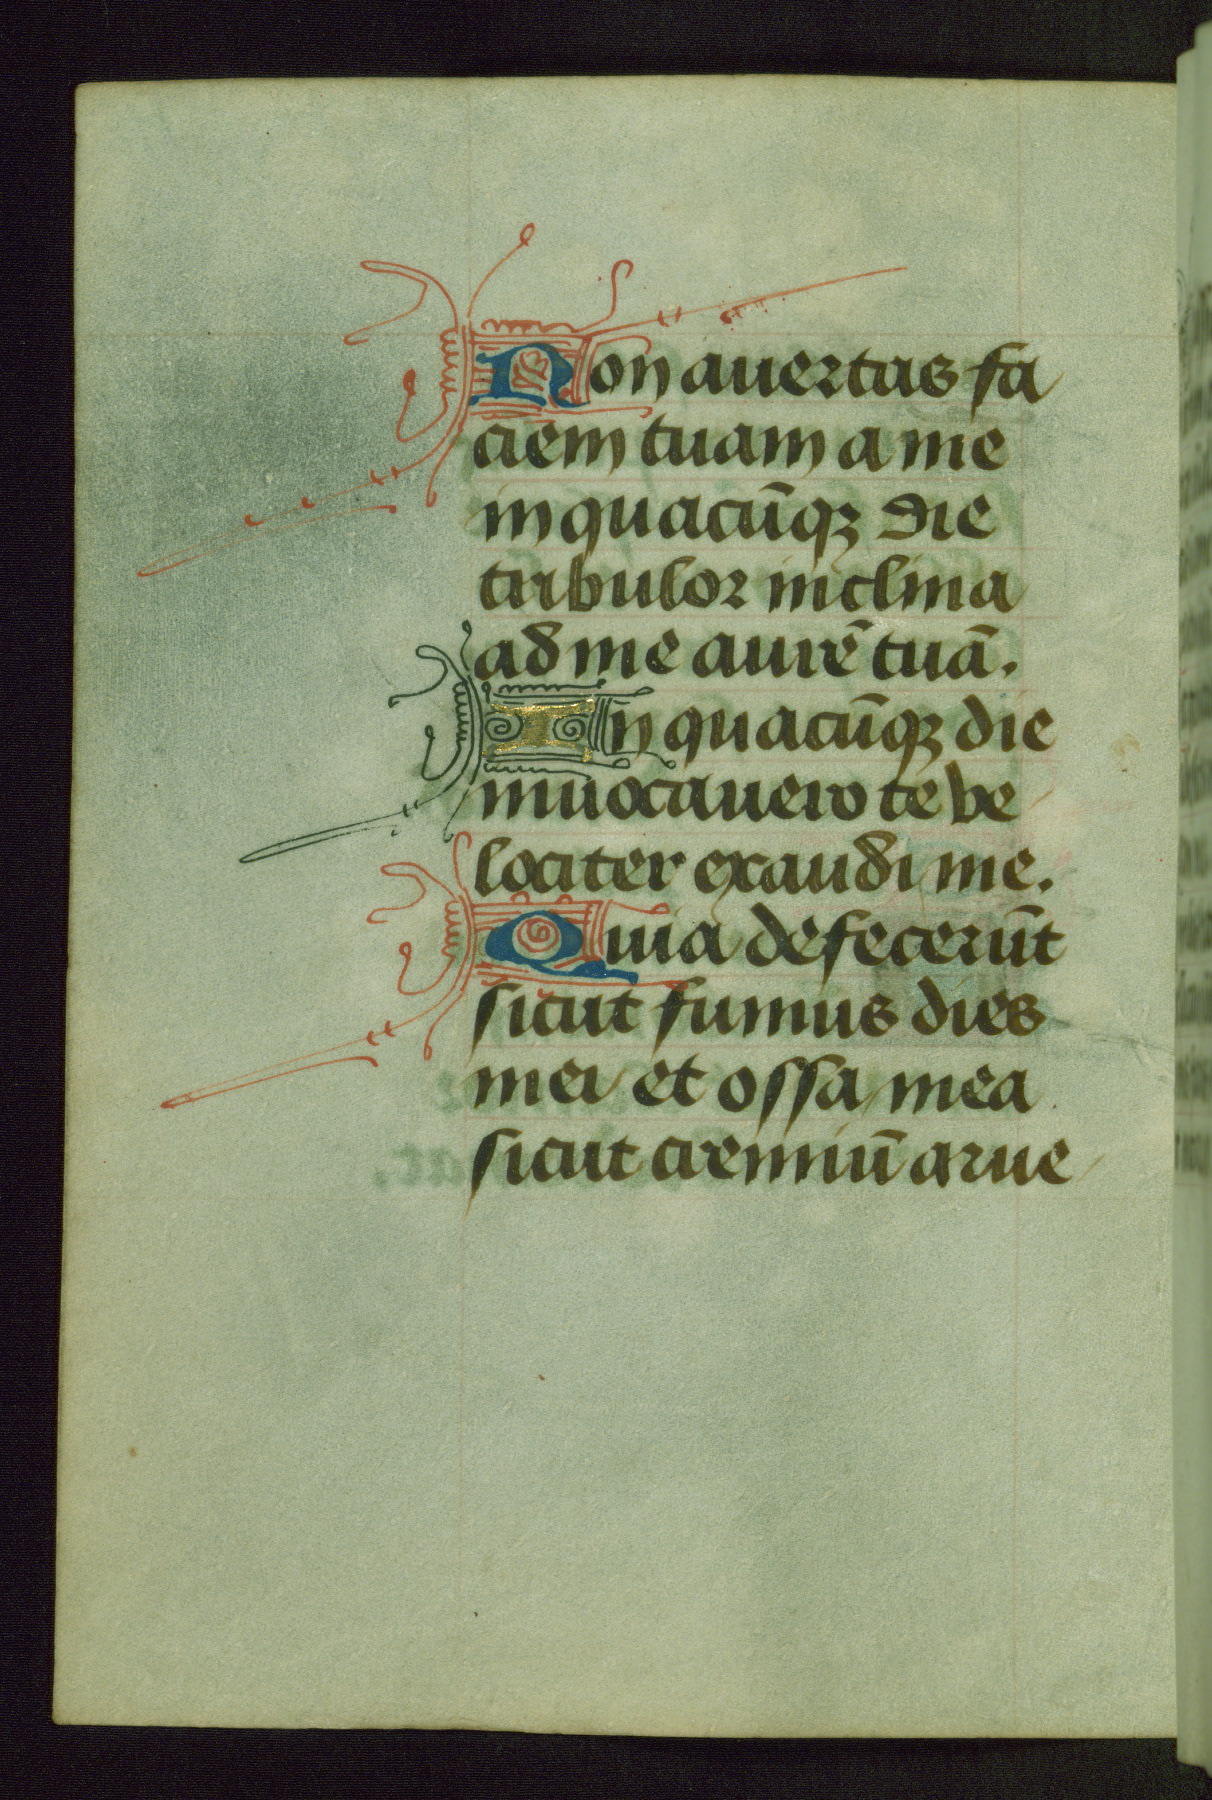 Non auertas fa
ciem tuam a me
in quacūqꝫ die
tribulor inclina
ad me aurē tuā.
In quacūqꝫ die
inuocauero te ve
lociter exaudi me.
Quia defecerūt
sicut fumus dies
mei et ossa mea
sicut cremiū arue